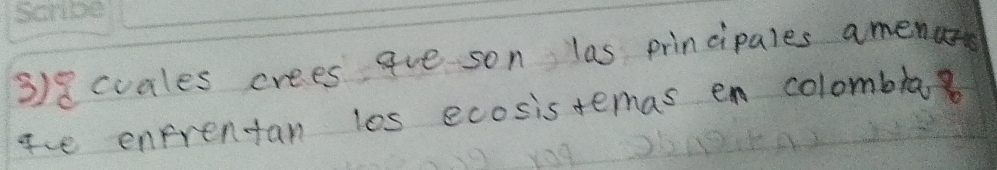 Scribe
3) ¿cuales crees que son las principales amenazas
que enfrentan los ecosistemas en colombia?